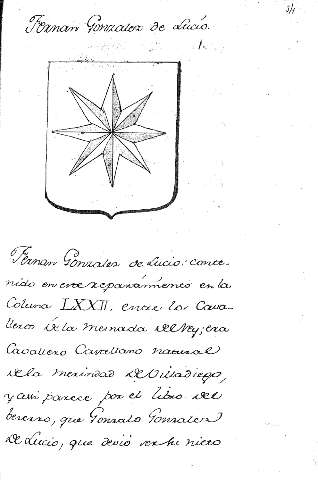 Fernan Gonzalez de Lucio.
Fernan Gonzalez de Lucio: conte-
nido en este repartimiento en la
Coluna LXXII. entre los Cava-
lleros de la mesnada del Rey; era
Cavallero Castellano natural
de la merindad de Villadiego,
y assi parece por el libro del
becerro, que Gonzalo Gonzalez
de Lucio, que devió ser su nieto